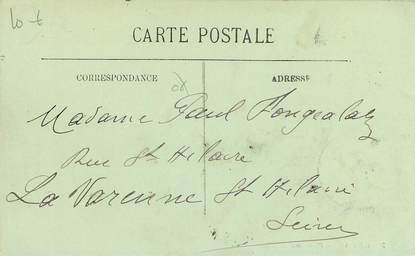 10 t
CARTE POSTALE
CORRESPONDANCE
ADRESSE
Madame Paul
Rue St Hilaire
La Varenne St Hilaire
Seine